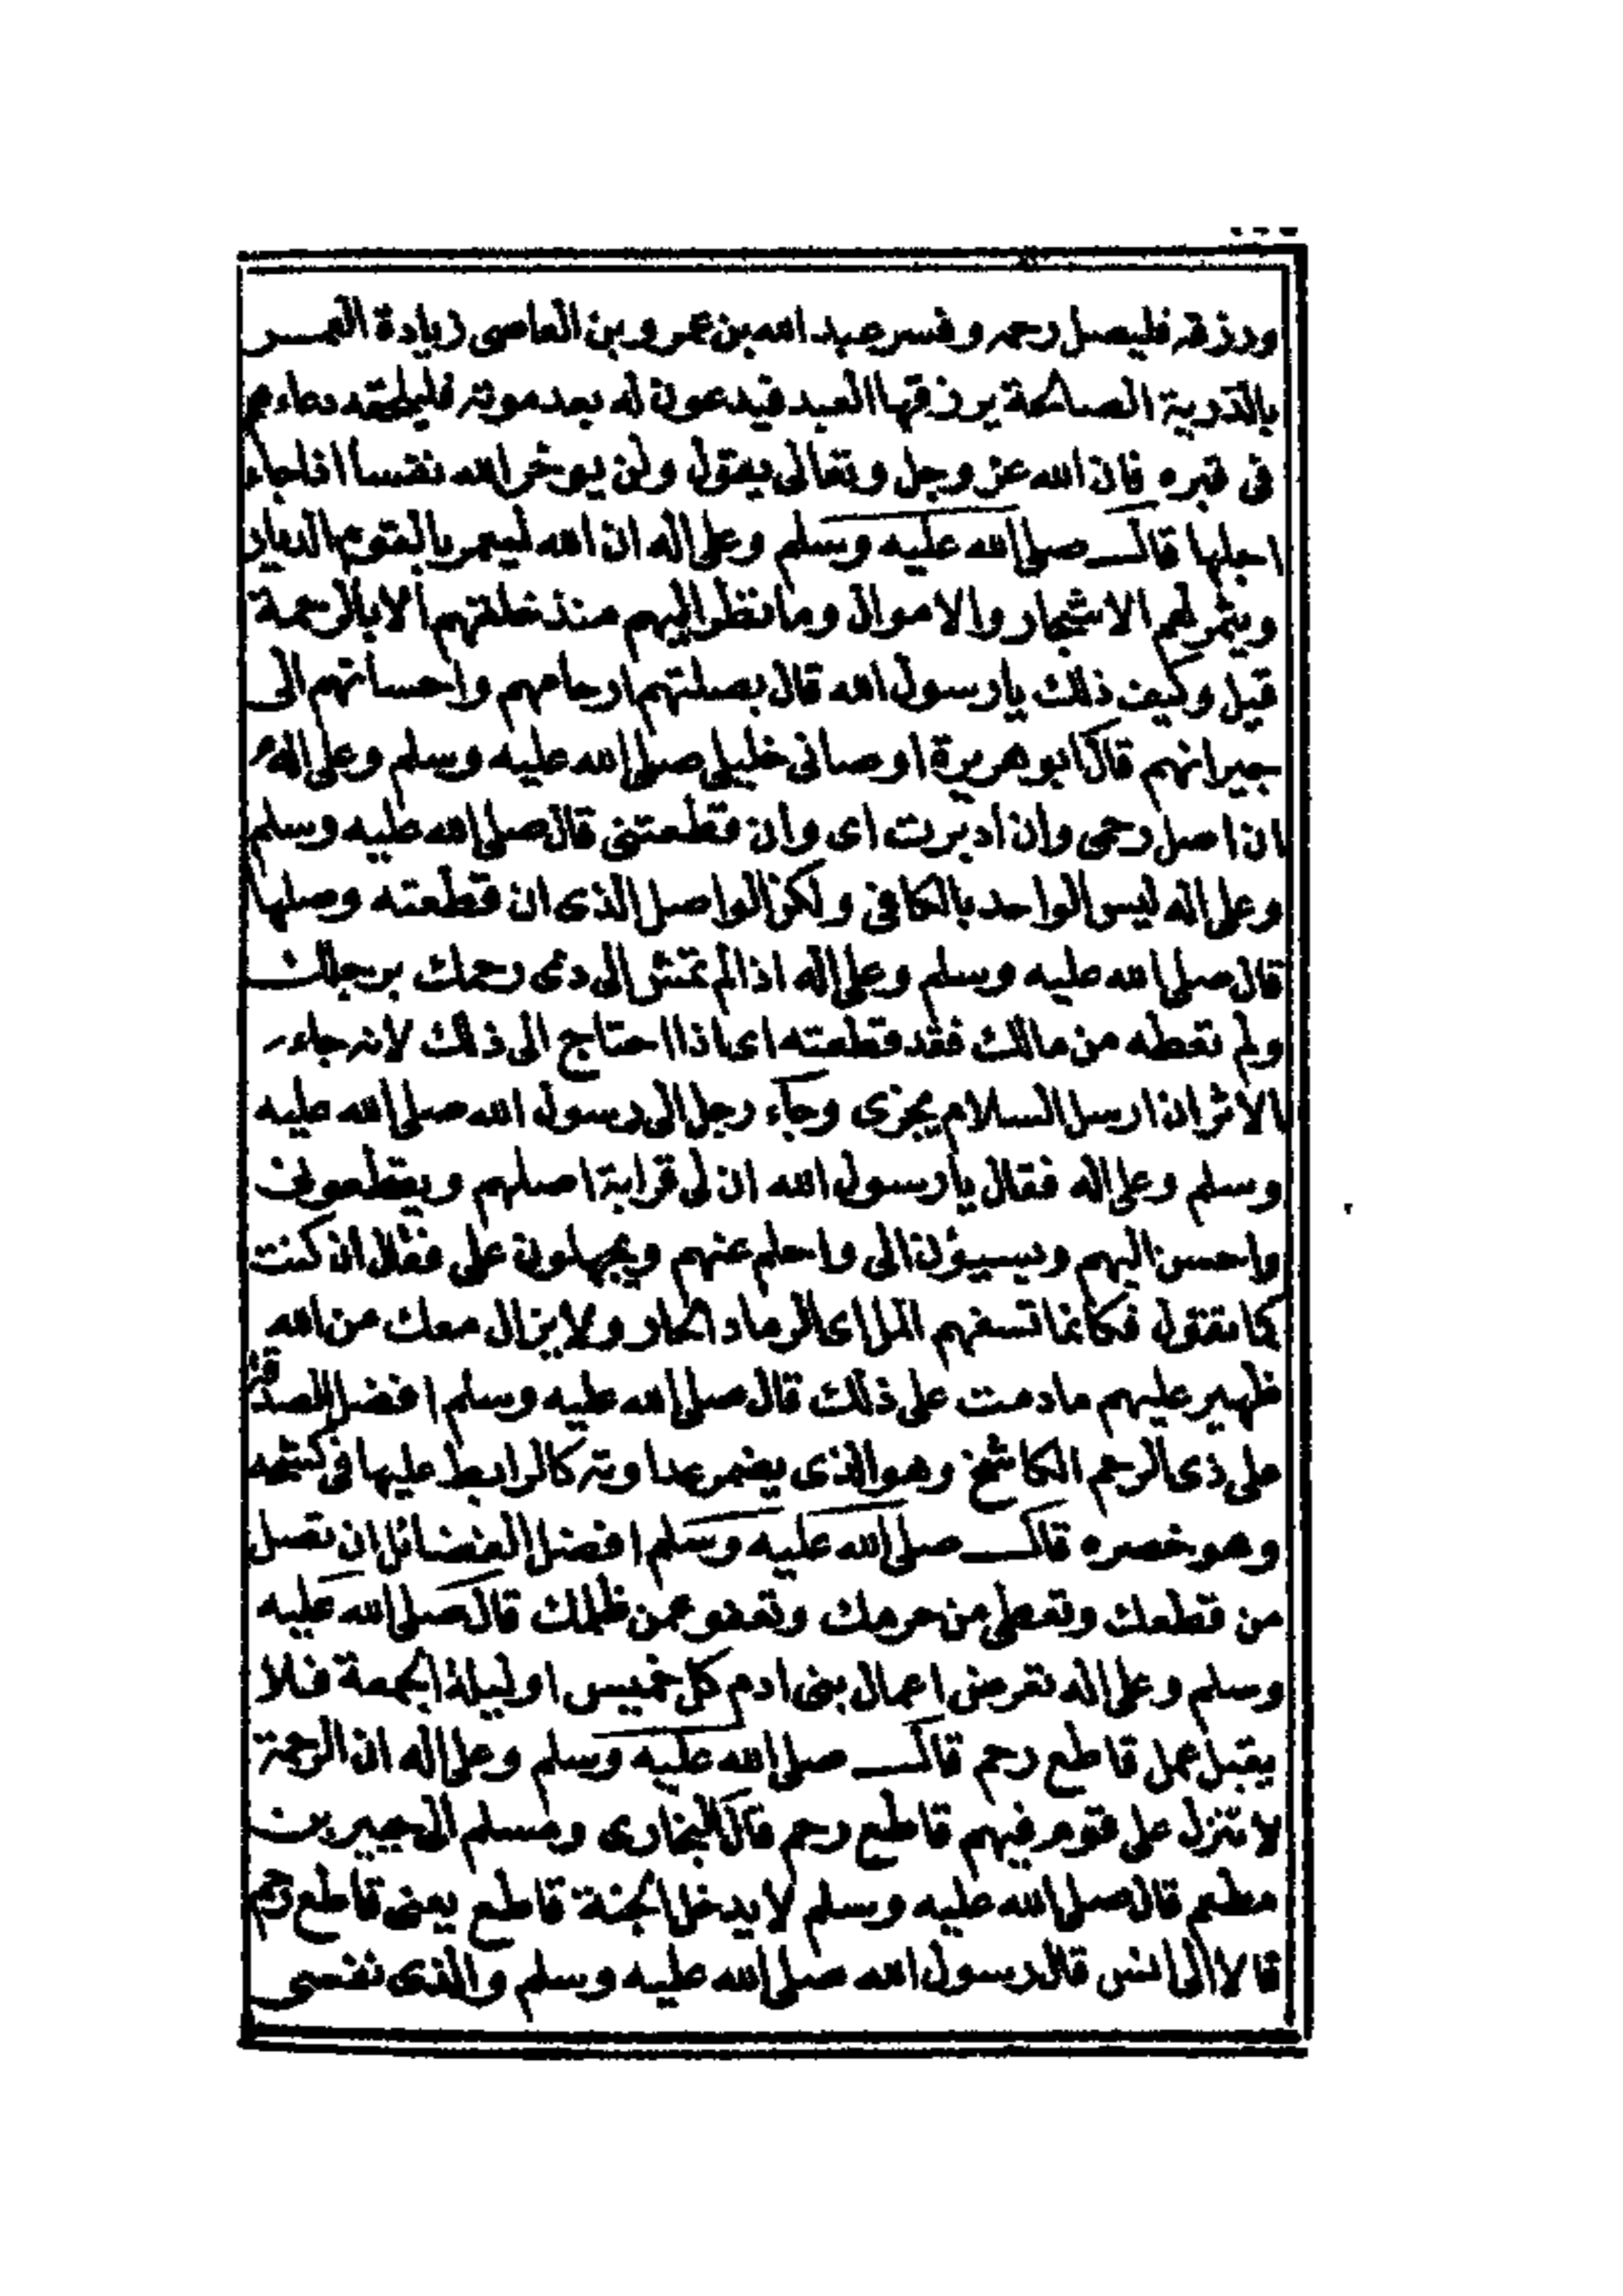 ورزقه فليصل رحمه وفسر عبد الله بن عمرو بن العاصى زيادة العمر
بالذرية الصالحة يرزقها العبد فيدعون له بعد موته فليلحقه دعاءهم
فى قبره فان الله عز وجل وتعالى يقول ولن يوخر الله نفسا اذا جاء
اجلها قال صلى الله عليه وسلم وعلى اله ان الله ليعمر بالقوم الديار
ويثمر لهم الاشجار والاموال وما نظر اليهم منذ خلقهم الا بالرحمة
قيل وكيف ذلك يا رسول الله قال بصلتهم ارحامهم واحسانهم الى
جيرانهم قال ابو هريرة اوصانى خليلى صلى الله عليه وسلم وعلى اله
ان اصل رحمى وان ادبرت اى وان قطعتنى قال صلى الله عليه وسلم
وعلى اله ليس الواحد بالكافى ولكن الواصل الذى ان قطعته وصلها
قال صلى الله عليه وسلم وعلى اله اذا لم تمش الى ذى رحمك برجلك
ولم تعطه من مالك فقد قطعته اى اذا احتاج الى ذلك لانه جاء
الاثر ان ارسل السلام يجزى وجاء رجل الى رسول الله صلى الله عليه
وسلم وعلى اله فقال يا رسول الله ان لى قرابة اصلهم ويقطعون
واحسن اليهم ويسيؤن الى واحلم عنهم ويجهلون على فقال ان كنت
كما تقول فكانما تسفهم المل اى الرماد الحار ولا يزال معك من الله
ظهير عليهم ما دمت على ذلك قال صلى الله عليه وسلم افضل الصدقة
على ذى الرحم الكاشح وهو الذى يضمر عداوته كالرابط عليها فى كشحه
وهو خصره قال صلى الله عليه وسلم افضل الفضائل ان تصل
من قطعك وتعطى من حرمك وتعفو عمن ظلمك قال صلى الله عليه
وسلم وعلى اله تعرض اعمال بنى ادم كل خميس او ليلة الجمعة فلا
يقبل عمل قاطع رحم قال صلى الله عليه وسلم وعلى اله ان الرحمة
لا تنزل على قوم فيهم قاطع رحم قال البخارى ومسلم الى جبير بن
مطعم قال صلى الله عليه وسلم لا يدخل الجنة قاطع يعنى قاطع رحم
قالا الى انس قال رسول الله صلى الله عليه وسلم والذى نفسى